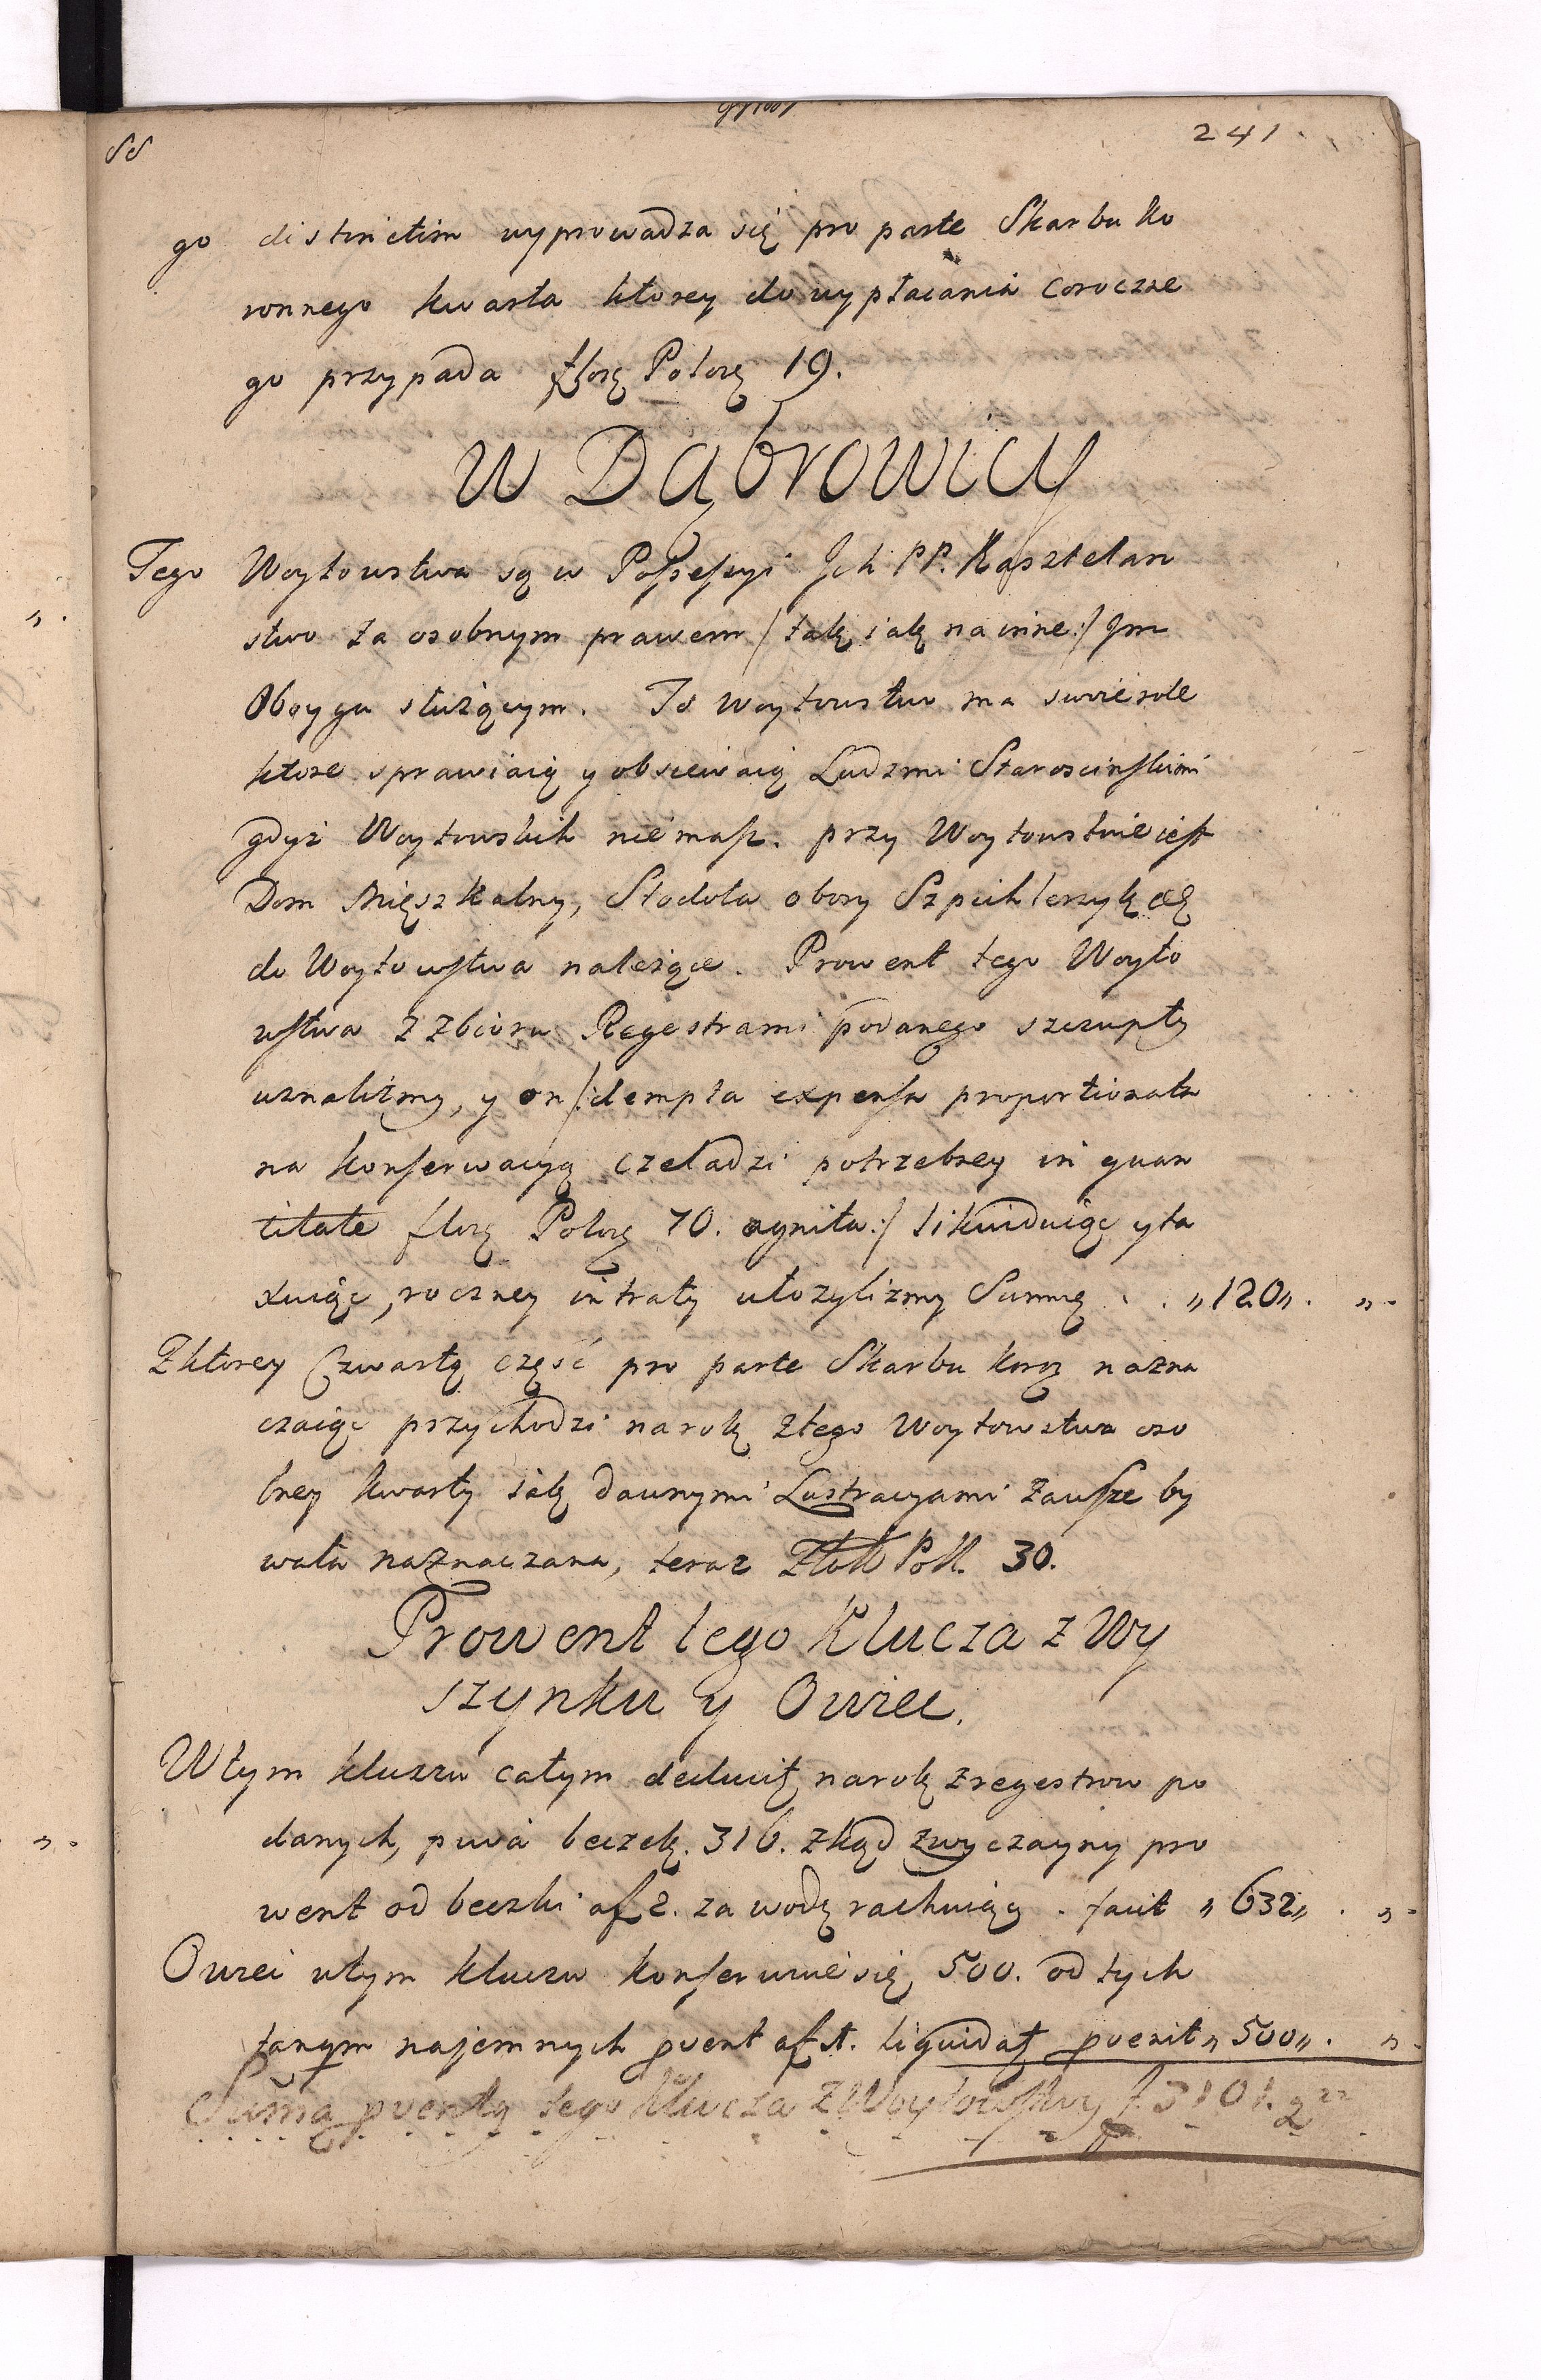 241
go distinctim wyprowadza się pro parte Skarbu Ko
ronnego kwarta ktorey do wypłacania coroczne
go przypada florę Polorę 19.
W Dąbrowicy
Tego Woytowstwa są w Possessyi Jch PP. Kasztelan
stwo za osobnym prawem /: tak iak na inne :/ Jm
Oboygu służącym. To Woytowstwo ma swoie role
ktore sprawiaią y obsiewaią Ludzmi Staroscinskimi
gdyż Woytowskich niemasz. przy Woytowstwie iest
Dom Mięszkalny, Stodoła obory Szpichlerzyk etc
do Woytowstwa należące. Prowent tego Woyto
wstwa z Zbioru Regestrami podanego szczupły
uznaliżmy, y on /: dempta expensa proportionata
na konserwacyą czeladzi potrzebney in quan
titate florę Polorę 70. agnita :/ likwiduiąc y ta
xuiąc, roczney intraty ułozyliżmy Summę . . „120„. „.
Zktorey Czwartą część pro parte Skarbu korę nazna
czaiąc przychodzi narok ztego Woytowstwa oso
bney kwarty iak dawnymi Lustracyami zawsze by
wała naznaczana, teraz Złott Poll. 30.
Prowent tego Klucza z Wy
szynku y Owiec.
Wtym kluczu całym narok zregestrow po
danych, piwa beczek. 316. zkąd zwyczayny pro
went od beczki af 2. za wodę rachuiąc . facit „632„ . „.
Owiec wtym kluczu konserwuie się 500. od tych
tanqm najemnych pvent af 1. liquidat pvenit „500„. „.
Suma pventu tego Klucza z Woytowstwy f. 3101. 2